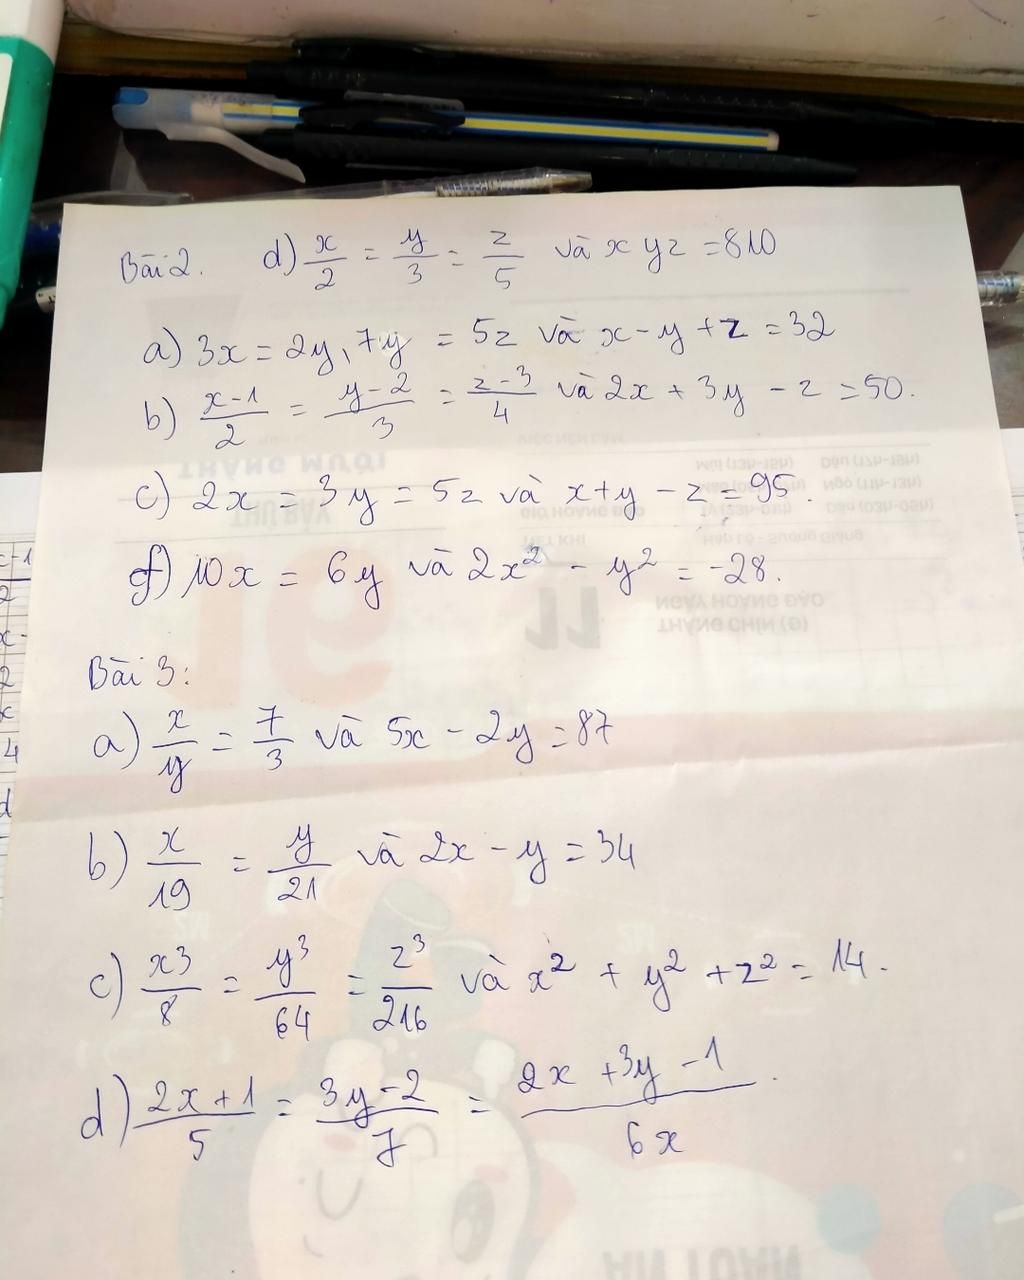 Bài 2. d) x/2 = y/3 = z/5 và xyz = 810
a) 3x = 2y, 7y = 5z và x - y + z = 32
b) x-1/2 = y-2/3 = z-3/4 và 2x + 3y - z = 50.
c) 2x = 3y = 5z và x+y - z = 95.
f) 10x = 6y và 2x² - y² = -28.
Bài 3:
a) x/y = 7/3 và 5x - 2y = 87
b) x/19 = y/21 và 2x - y = 34
c) x³/8 = y³/64 = z³/216 và x² + y² + z² = 14.
d) 2x+1/5 = 3y-2/7 = 2x+3y-1/6x.